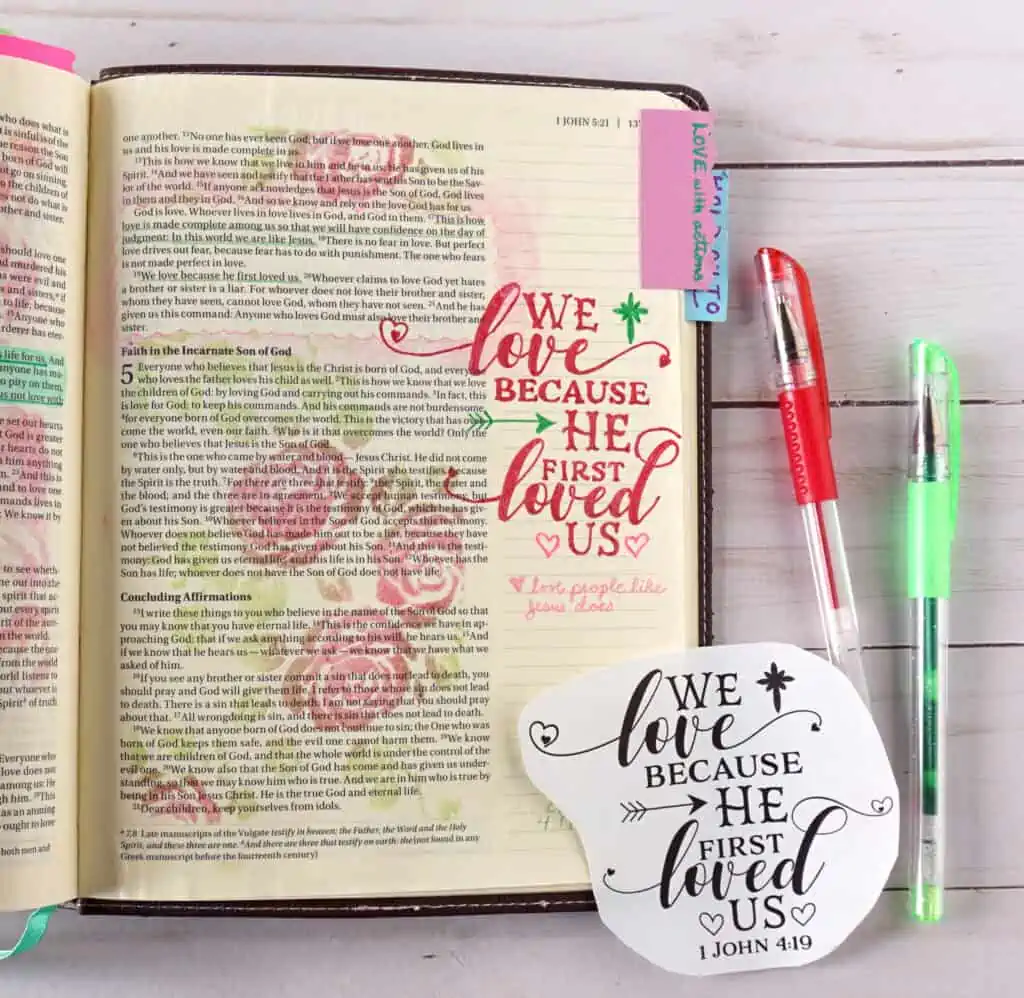 who does what is
t is sinful is of the
e reason the Son
born of God will
ot go on sinning,
the children of
s not do what is
other and sister.
should love one
nd murdered his
s were evil and
and sisters,
to life, because
Anyone who
rderer has eter-
life for us. And
anyone has ma-
o pity on them,
us not love with
we set our hearts
God is greater
hearts do not
him anything
And this is
and to love one
mands lives in
We know it by
to see wheth-
e out into the
spirit that ac-
but every spirit
rit of the anti-
n the world.
ecause the one
from the world
listens to
but whoever is
Spirit of truth
Everyone who
love does not
among us: He
h him. This
as an atoning
ought to love
both men and
1 JOHN 5:21 |
one another. 12No one has ever seen God; but if we love one another, God lives in
us and his love is made complete in us.
13This is how we know that we live in him and he in us: He has given us of his
Spirit. 14And we have seen and testify that the Father has sent his Son to be the Sav-
ior of the world. 15If anyone acknowledges that Jesus is the Son of God, God lives
in them and they in God. 16And so we know and rely on the love God has for us.
God is love. Whoever lives in love lives in God, and God in them. 17This is how
love is made complete among us so that we will have confidence on the day of
judgment: In this world we are like Jesus. 18There is no fear in love. But perfect
love drives out fear, because fear has to do with punishment. The one who fears
is not made perfect in love.
19We love because he first loved us. 20Whoever claims to love God yet hates
a brother or sister is a liar. For whoever does not love their brother and sister,
whom they have seen, cannot love God, whom they have not seen. 21And he has
given us this command: Anyone who loves God must also love their brother and
sister.
Faith in the Incarnate Son of God
5 Everyone who believes that Jesus is the Christ is born of God, and everyone
who loves the father loves his child as well. 2This is how we know that we love
the children of God: by loving God and carrying out his commands. 3In fact, this
is love for God: to keep his commands. And his commands are not burdensome,
4for everyone born of God overcomes the world. This is the victory that has over-
come the world, even our faith. 5Who is it that overcomes the world? Only the
one who believes that Jesus is the Son of God.
6This is the one who came by water and blood—Jesus Christ. He did not come
by water only, but by water and blood. And it is the Spirit who testifies, because
the Spirit is the truth. 7For there are three that testify: 8the Spirit, the water and
the blood; and the three are in agreement. 9We accept human testimony, but
God's testimony is greater because it is the testimony of God, which he has giv-
en about his Son. 10Whoever believes in the Son of God accepts this testimony.
Whoever does not believe God has made him out to be a liar, because they have
not believed the testimony God has given about his Son. 11And this is the testi-
mony: God has given us eternal life, and this life is in his Son. 12Whoever has the
Son has life; whoever does not have the Son of God does not have life.
Concluding Affirmations
13I write these things to you who believe in the name of the Son of God so that
you may know that you have eternal life. 14This is the confidence we have in ap-
proaching God: that if we ask anything according to his will, he hears us. 15And
if we know that he hears us—whatever we ask—we know that we have what we
asked of him.
16If you see any brother or sister commit a sin that does not lead to death, you
should pray and God will give them life. I refer to those whose sin does not lead
to death. There is a sin that leads to death. I am not saying that you should pray
about that. 17All wrongdoing is sin, and there is sin that does not lead to death.
18We know that anyone born of God does not continue to sin; the One who was
born of God keeps them safe, and the evil one cannot harm them. 19We know
that we are children of God, and that the whole world is under the control of the
evil one. 20We know also that the Son of God has come and has given us under-
standing, so that we may know him who is true. And we are in him who is true by
being in his Son Jesus Christ. He is the true God and eternal life.
21Dear children, keep yourselves from idols.
a 7,8 Late manuscripts of the Vulgate testify in heaven: the Father, the Word and the Holy
Spirit, and these three are one. 8And there are three that testify on earth: the (not found in any
Greek manuscript before the fourteenth century)
LOVE with actions
TO
WE
love
BECAUSE
HE
FIRST
loved
US
love people like
Jesus does
WE
love
BECAUSE
HE
FIRST
loved
US
1 JOHN 4:19